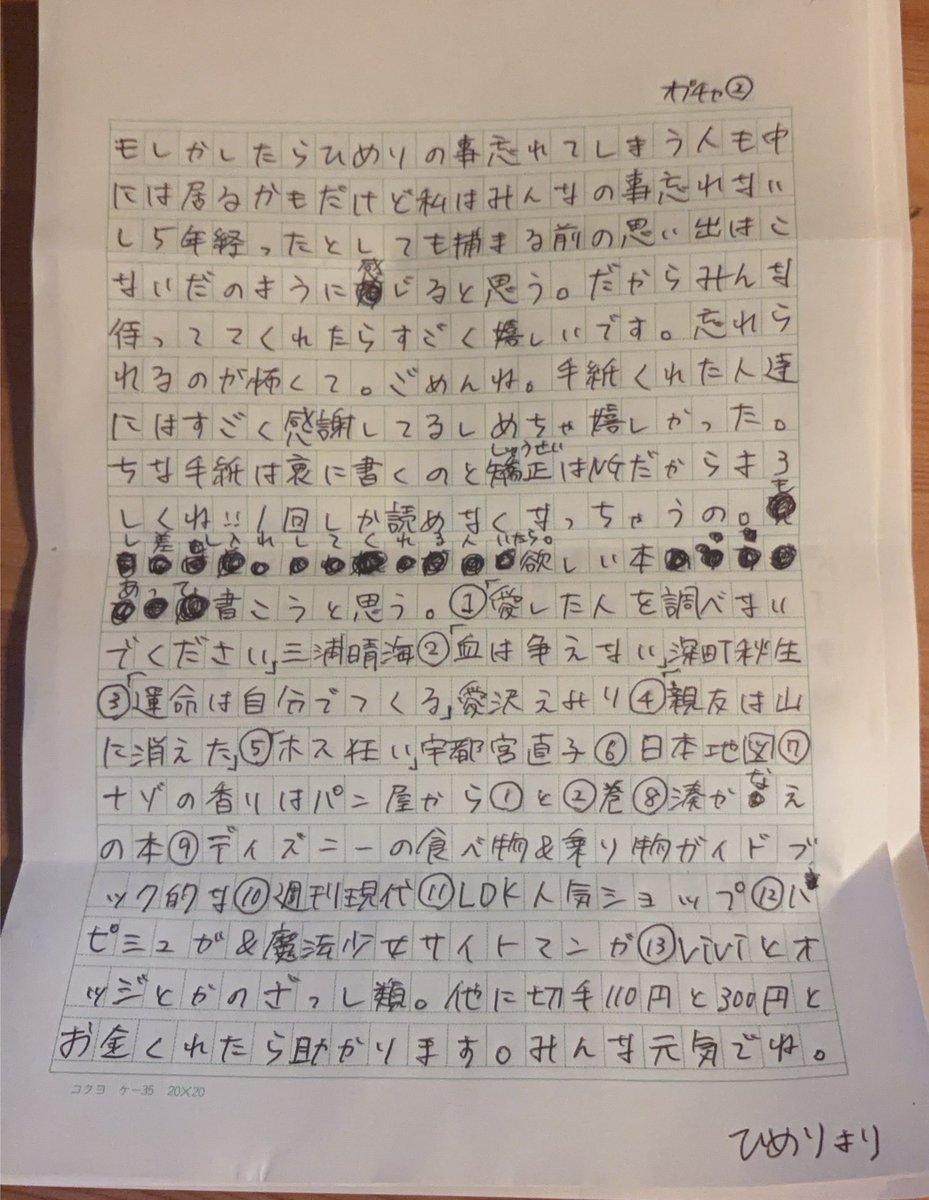 オプチャ②
もしかしたらひめりの事忘れてしまう人も中
には居るかもだけど私はみんなの事忘れない
し5年経ったとしても捕まる前の思い出はこ
ないだのように感じると思う。だからみんな
待っててくれたらすごく嬉しいです。忘れら
れるのが怖くて。ごめんね。手紙くれた人達
にはすごく感謝してるしめちゃ嬉しかった。
しゅうせい
ちな手紙は裏に書くのと矯正はNGだからよろ
しくね!!1回しか読めなくなっちゃうの。も
し差し入れしてくれる人いたら。
欲しい本
あって
書こうと思う。①「愛した人を調べない
でください」三浦晴海②「血は争えない」深町秋生
③「運命は自分でつくる」愛沢えみり④「親友は山
に消えた」⑤「ホス狂い」宇都宮直子⑥日本地図⑦
ナゾの香りはパン屋から①と②巻⑧湊かなえ
の本⑨ディズニーの食べ物&乗り物ガイドブ
ック的な⑩週刊現代⑪LDK人気ショップ⑫ハ
ピミュが&魔法少女サイトマンガ⑬ViViとオ
ッジとかのざっし類。他に切手110円と300円と
お金くれたら助かります。みんな元気でね。
コクヨ ケー35 20×20
ひめりより